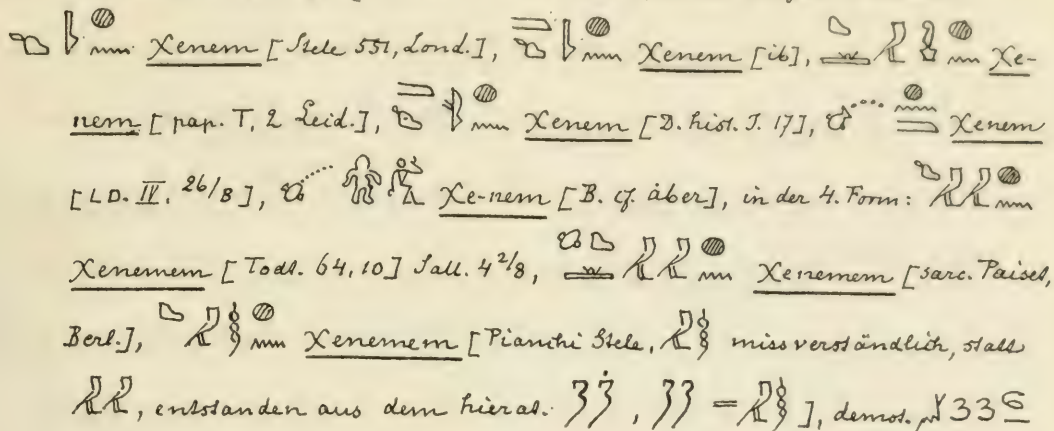 Xenem [Stele 551, Lond.], Xenem [ib], Xe-
nem [pap. T, 2 Leid.], Xenem [D. hist. I. 17], Xenem
[LD. IV. 26/B], Xe-nem [B. cf. äber], in der 4. Form:
Xenemem [Todt. 64, 10] Sall. 4 2/8, Xenemem [sarc. Paises,
Berl.], Xenemem [Pianchi Stele, missverständlich, statt
, entstanden aus dem hierat. , = ], demot.